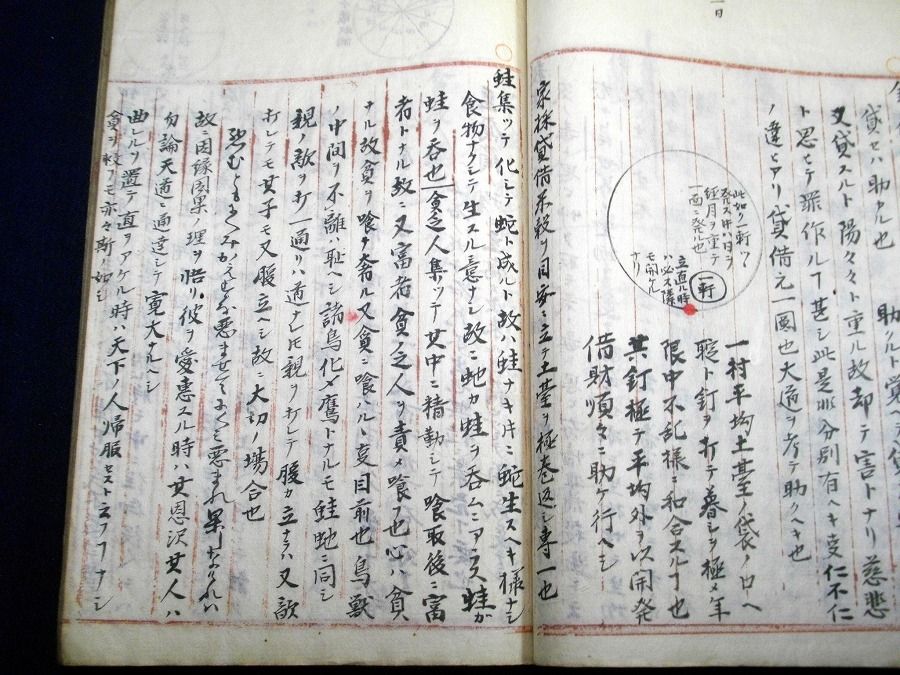 貸セハ助クル也
又貸スルト陽々ト重ル故却テ害トナリ慈悲
ト思ヒテ罪作ルヿ甚シ此是非分別有ヘキ支仁不仁
ノ違ヒアリ貸借元一圓也大道ヲ考テ助クヘキ也
此如ク一軒ツヽ
発ス片ハ日ヲ
経月ヲ重テ
一面ニ発ル也
一軒
立直ル時
ハ必ス隣
モ開ケル
ナリ
一村平均土臺ノ袋ノ口ヘ
聢ト釘ヲ打テ暮シヲ極メ年
限中不乱様ニ和合スルヿ也
其釘極テ平均外ヲ以開発
借財順々ニ助ケ行ヘシ
家株貸借米殻ヲ目安ニ立テ土臺ヲ極巻返シ専一也
蛙集ツテ化シテ蛇ト成ルト故ハ蛙ナキ片ニ蛇生スヘキ様ナシ
食物ナクシテ生スル意ナシ故ニ蛇カ蛙ヲ呑ムニアラス蛙カ
蛙ヲ呑也貧乏人集ツテ其中ニ精勤シテ喰取後ニ富
者トナル故ニ又富者貧乏人ヲ責メ喰フ也心ハ貧
ナル故貧ヲ喰テ奢ル又貧ニ喰ハルヽ支目前也鳥獣
ノ中間ヲ不離ハ恥ヘシ諸鳥化メ鷹トナルモ蛙蛇ニ同シ
親ノ敵ヲ打一通リハ道ナレ𪜈親ヲ打レテ腹カ立ナラハ又敵
打レテモ其子モ又腹立ヘシ故ニ大切ノ場合也
故ニ因縁因果ノ理ヲ悟リ彼ヲ愛恵スル時ハ其恩沢其人ハ
勿論天道ニ通達シテ寛大ナルヘシ
曲レルヲ置テ直ヲアケル時ハ天下ノ人帰服セスト云フヿナシ
貧ヲ救フモ亦々斯ノ如シ